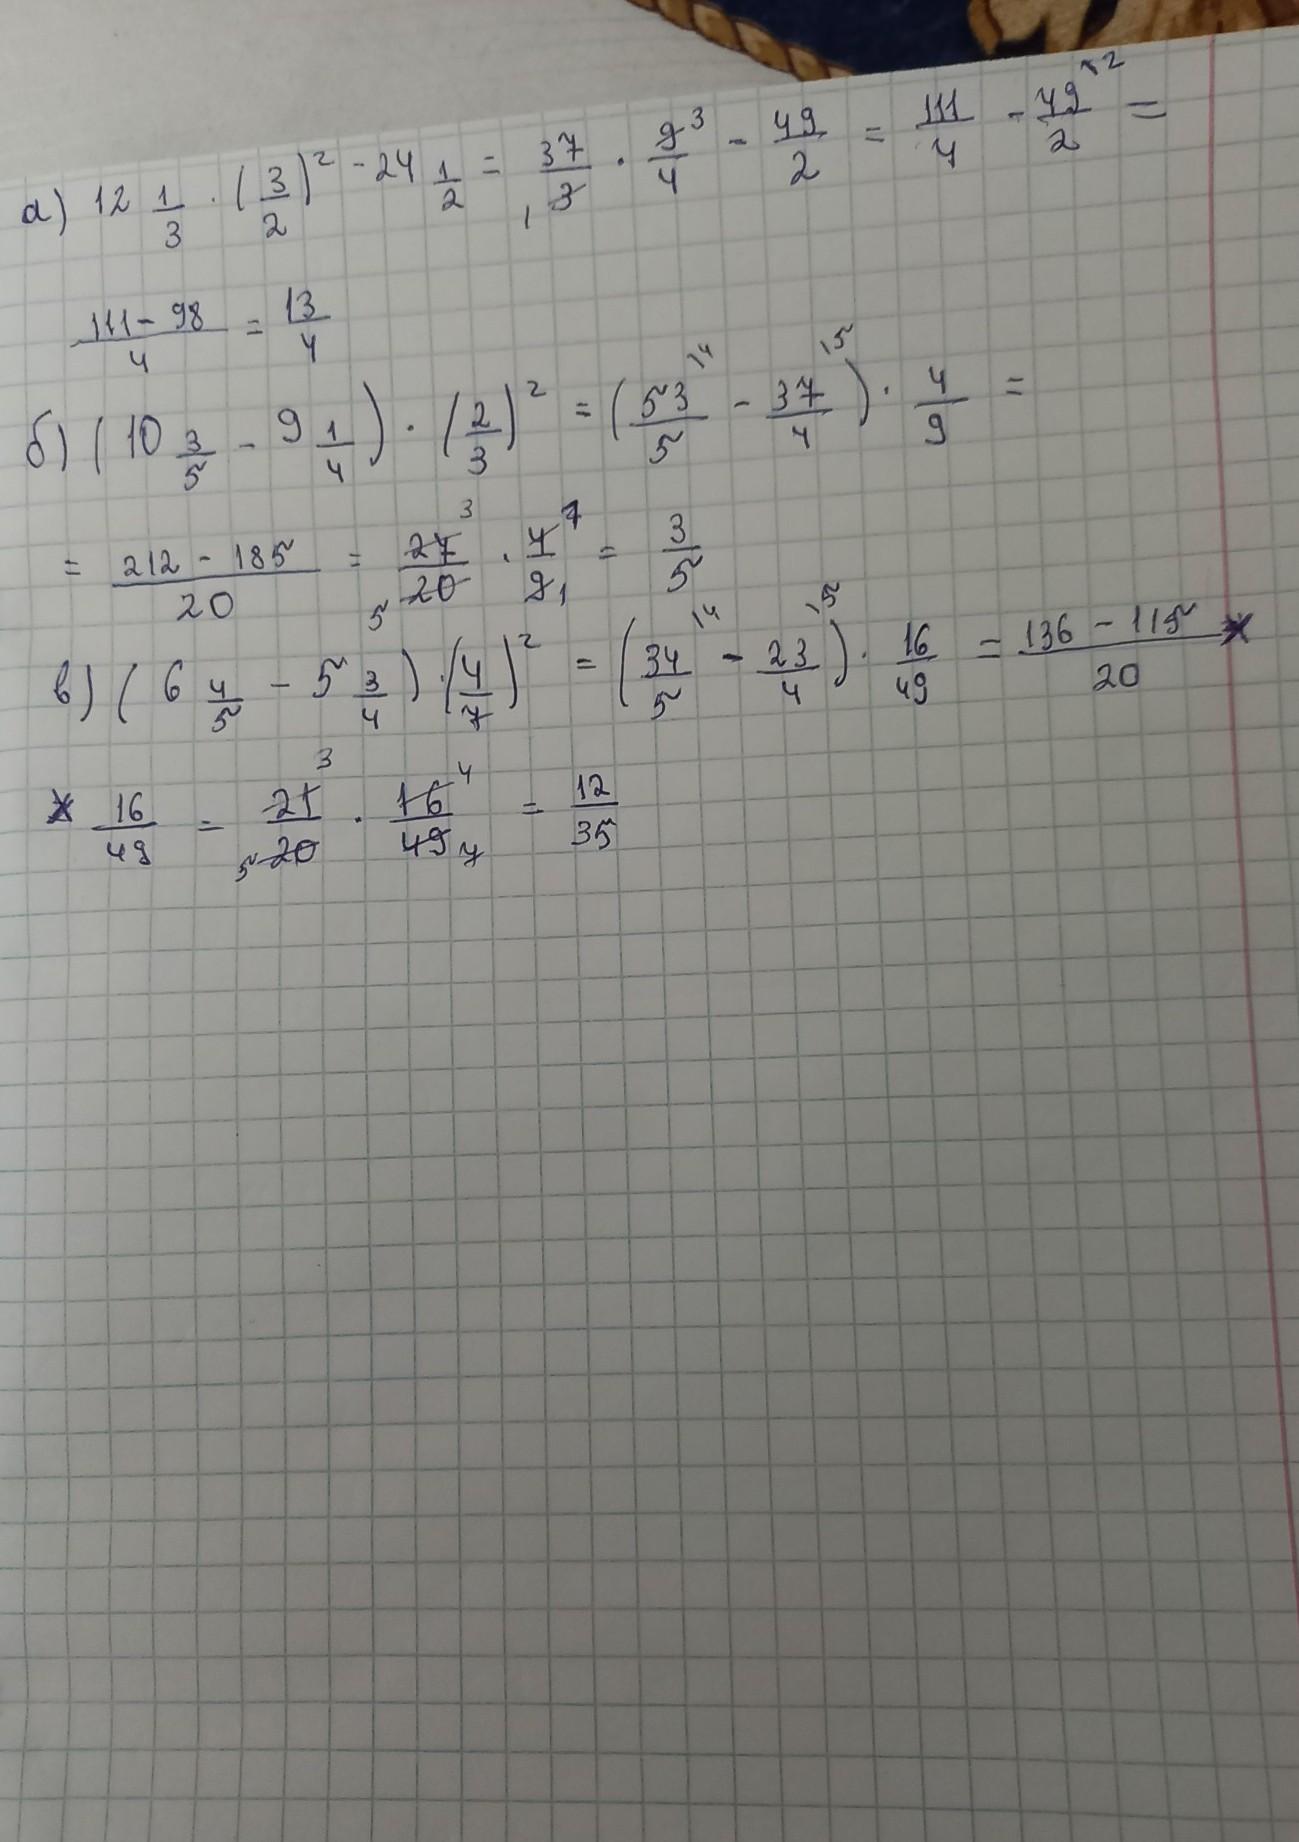 а) 12 1/3 · (3/2)² - 24 1/2 = 37/3 1 · 9/4 3 - 49/2 = 111/4 - 49/2 \2 =
(111 - 98)/4 = 13/4
б) (10 3/5 - 9 1/4) · (2/3)² = (53/5 \4 - 37/4 \5) · 4/9 =
= (212 - 185)/20 = 27/20 3 5 · 4/9 1 1 = 3/5
в) (6 4/5 - 5 3/4) · (4/7)² = (34/5 \4 - 23/4 \5) · 16/49 = (136 - 115)/20 ×
× 16/49 = 21/20 3 5 · 16/49 4 7 = 12/35